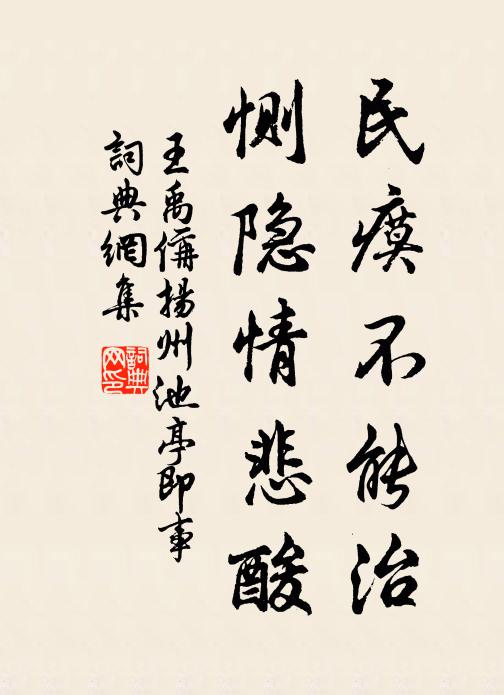 民瘼不能治
惻隐情悲酸
王禹偁揚州池亭即事
詞典網集
詞典网印